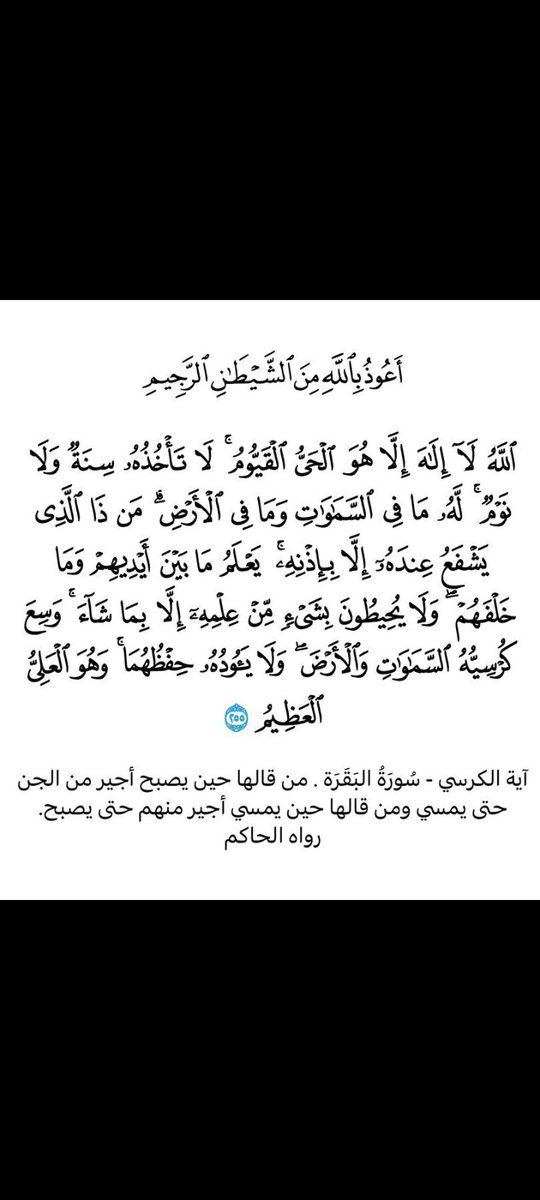 أَعُوذُ بِٱللَّهِ مِنَ ٱلشَّيْطَٰنِ ٱلرَّجِيمِ
ٱللَّهُ لَآ إِلَٰهَ إِلَّا هُوَ ٱلْحَىُّ ٱلْقَيُّومُ ۚ لَا تَأْخُذُهُۥ سِنَةٌ وَلَا
نَوْمٌ ۚ لَّهُۥ مَا فِى ٱلسَّمَٰوَٰتِ وَمَا فِى ٱلْأَرْضِ ۗ مَن ذَا ٱلَّذِى
يَشْفَعُ عِندَهُۥٓ إِلَّا بِإِذْنِهِۦ ۚ يَعْلَمُ مَا بَيْنَ أَيْدِيهِمْ وَمَا
خَلْفَهُمْ ۖ وَلَا يُحِيطُونَ بِشَىْءٍ مِّنْ عِلْمِهِۦٓ إِلَّا بِمَا شَآءَ ۚ وَسِعَ
كُرْسِيُّهُ ٱلسَّمَٰوَٰتِ وَٱلْأَرْضَ ۖ وَلَا يَـُٔودُهُۥ حِفْظُهُمَا ۚ وَهُوَ ٱلْعَلِىُّ
ٱلْعَظِيمُ ٢٥٥
آية الكرسي - سُورَةُ البَقَرَة . من قالها حين يصبح أجير من الجن
حتى يمسي ومن قالها حين يمسي أجير منهم حتى يصبح.
رواه الحاكم